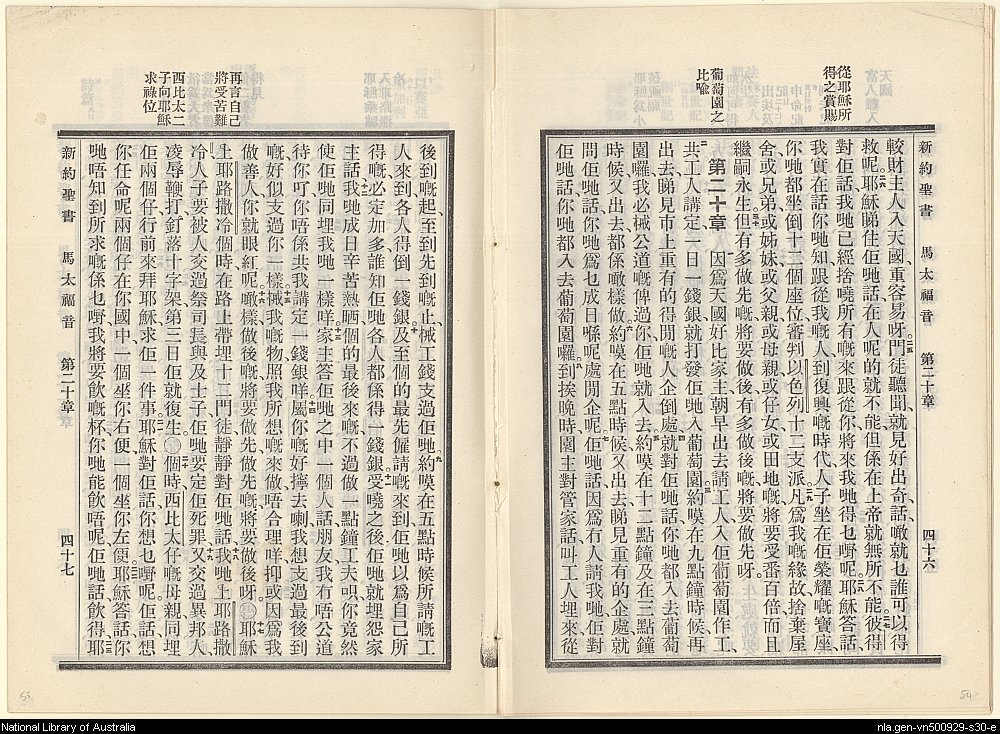 從耶穌所
得之賞賜
葡萄園之
比喻
新約聖書 馬太福音 第二十章 四十六
較財主人入天國重容易呀門徒聽聞就見好出奇話噉就乜誰可以得
救呢耶穌睇住佢哋話在人呢的就不能但係在上帝就無所不能彼得
對佢話我哋已經捨嘵所有嘅來跟從你將來我哋得乜嘢呢耶穌答話
我實在話你哋知跟從我嘅人到復興嘅時代人子坐在佢榮耀嘅寶座
你哋都坐倒十二個座位審判以色列十二支派凡爲我嘅緣故捨棄屋
舍或兄弟或姊妹或父親或母親或仔女或田地嘅將要受番百倍而且
繼嗣永生但有多做先嘅將要做後有多做後嘅將要做先呀
第二十章 因爲天國好比家主朝早出去請工人入佢葡萄園作工
共工人講定一日一錢銀就打發佢哋入葡萄園約嘆在九點鐘時候再
出去睇見市上重有的得閒嘅人企倒處就對佢哋話你哋都入去葡萄
園囉我必械公道嘅俾過你佢哋就入去約嘆在十二點鐘及在三點鐘
時候又出去都係噉樣做約嘆在五點時候又出去睇見重有的企處就
問佢哋話你哋爲乜成日喺呢處閒企呢佢哋話因爲有人請我哋佢對
佢哋話你哋都入去葡萄園囉到挨晚時園主對管家話叫工人埋來從
再言自己
將受苦難
西比太二
子向耶穌
求祿位
後到嘅起至到先到嘅止械工錢支過佢哋約嘆在五點時候所請嘅工
人來到各人得倒一錢銀及至個的最先僱請嘅來到佢哋以爲自己所
得嘅必定加多誰知佢哋各人都係得一錢銀受嘵之後佢哋就埋怨家
主話我哋成日辛苦熱晒個的最後來嘅不過做一點鐘工夫唄你竟然
使佢哋同埋我哋一樣咩家主答佢哋之中一個人話朋友我冇唔公道
待你吖你唔係共我講定一錢銀咩屬你嘅好擰去喇我想支過最後到
嘅好似支過你一樣械我嘅物照我所想嘅來做唔合理咩抑或因爲我
做善人你就眼紅呢噉樣做後嘅將要做先做先嘅將要做後呀耶穌
上耶路撒冷個時在路上帶埋十二門徒靜靜對佢哋話我哋上耶路撒
冷人子要被人交過祭司長與及士子佢哋要定佢死罪又交過異邦人
凌辱鞭打釘落十字架第三日佢就復生個時西比太仔嘅母親同埋
佢兩個仔行前來拜耶穌求佢一件事耶穌對佢話你想乜嘢呢佢話想
你任命呢兩個仔在你國中一個坐你右便一個坐你左便耶穌答話你
哋唔知到所求嘅係乜嘢我將要飲嘅杯你哋能飲唔呢佢哋話飲得耶
新約聖書 馬太福音 第二十章 四十七
National Library of Australia
nla.gen-vn500929-s30-e